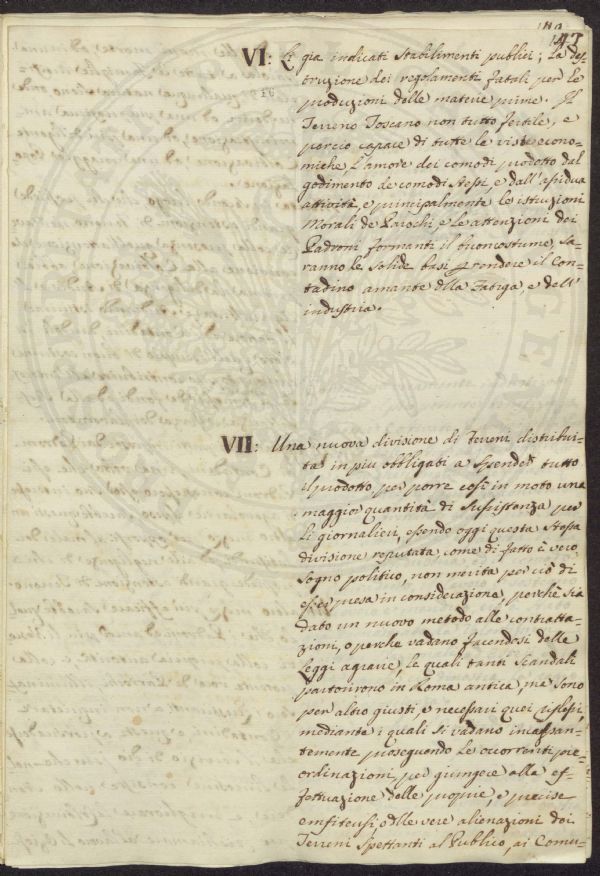 147
VI: Li gia indicati Stabilimenti publici; La des
truzione dei regolamenti fatali per le
produzioni delle materie prime. Il
Terreno Toscano non tutto fertile, e
percio capace di tutte le viste econo-
miche, L'amore dei comodi prodotto dal
godimento de comodi stessi, e dall'assidua
attività, e principalmente le istruzioni
Morali de Parochi, e le attenzioni dei
Padroni formanti il buoncostume, Sa-
ranno le Solide basi p rendere il Con-
tadino amante della Fatiga, e dell'
industria.
VII: Una nuova divisione di Terreni distribui-
ta in piu obbligati a Spender tutto
il prodotto per porre così in moto una
maggior quantità di Sussistenza per
li giornalieri, essendo oggi questa stessa
divisione reputata, come di fatto è vero
Sogno politico, non merita per ciò di
esser presa in considerazione, perchè sia
dato un nuovo metodo alle contratta-
zioni, o perche vadano facendosi delle
Leggi agrarie, le quali tanti Scandali
partorirono in Roma antica, ma sono
per altro giusti, e necessari quei riflessi,
mediante i quali si vadano incessan-
temente proseguendo le occorrenti pre-
ordinazioni, per giungere alla ef-
fettuazione delle proprie, e precise
emfiteusi, o delle vere alienazioni dei
Terreni Spettanti al Publico, ai Comu-